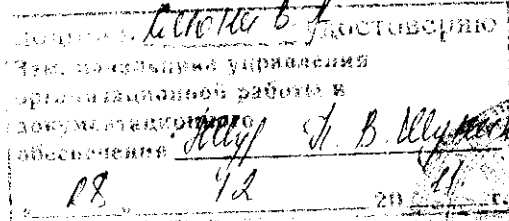 Подпись удостоверяю
Зам. начальника управления
организационной работы и
документационного
обеспечения П. В.
28 12 20 11 г.